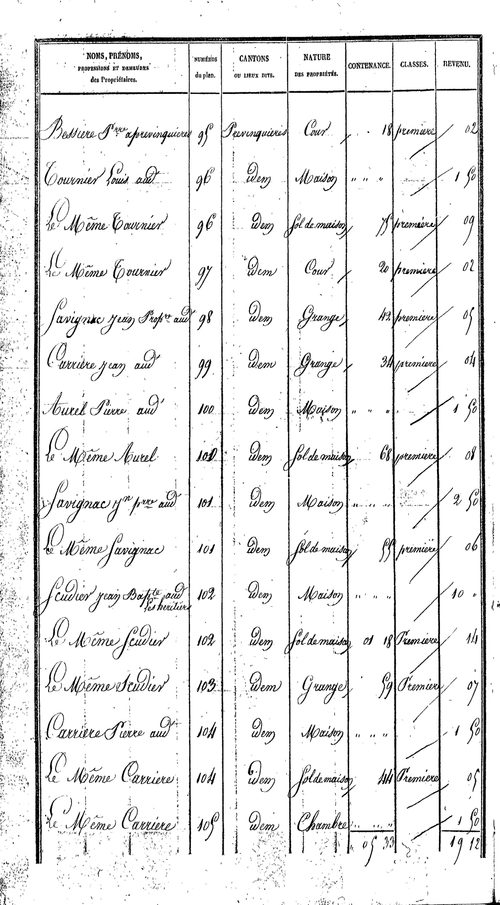 NOMS, PRÉNOMS, PROFESSIONS ET DEMEURES des Propriétaires. NUMÉROS du plan. CANTONS OU LIEUX DITS. NATURE DES PROPRIÉTÉS. CONTENANCE. CLASSES. REVENU.
Bessiere Prre a prevenquieres 95 Prevenquieres Cour 18 première 02
Tournier Louis aud 96 idem Maison " " " 1 50
Le Même Tournier 96 idem Sol de maison 75 première 09
Le Même Tournier 97 idem Cour 20 première 02
Savignac Jean Propre aud 98 idem Grange 42 première 05
Carrière Jean aud 99 idem Grange 34 première 04
Aurel Pierre aud 100 idem Maison " " " 1 50
Le Même Aurel 100 idem Sol de maison 68 première 08
Savignac Jn prre aud 101 idem Maison " " " 2 50
Le Même Savignac 101 idem Sol de maison 55 première 06
Scudier Jean Bapte aud
ses heritiers 102 idem Maison " " " 10 "
Le Même Scudier 102 idem Sol de maison 01 18 Premiere 14
Le Même Scudier 103 idem Grange 59 Premiere 07
Carriere Pierre aud 104 idem Maison " " " 1 50
Le Même Carriere 104 idem Sol de maison 44 Premiere 05
Le Même Carriere 105 idem Chambre " " " 1 50
05 33 19 12